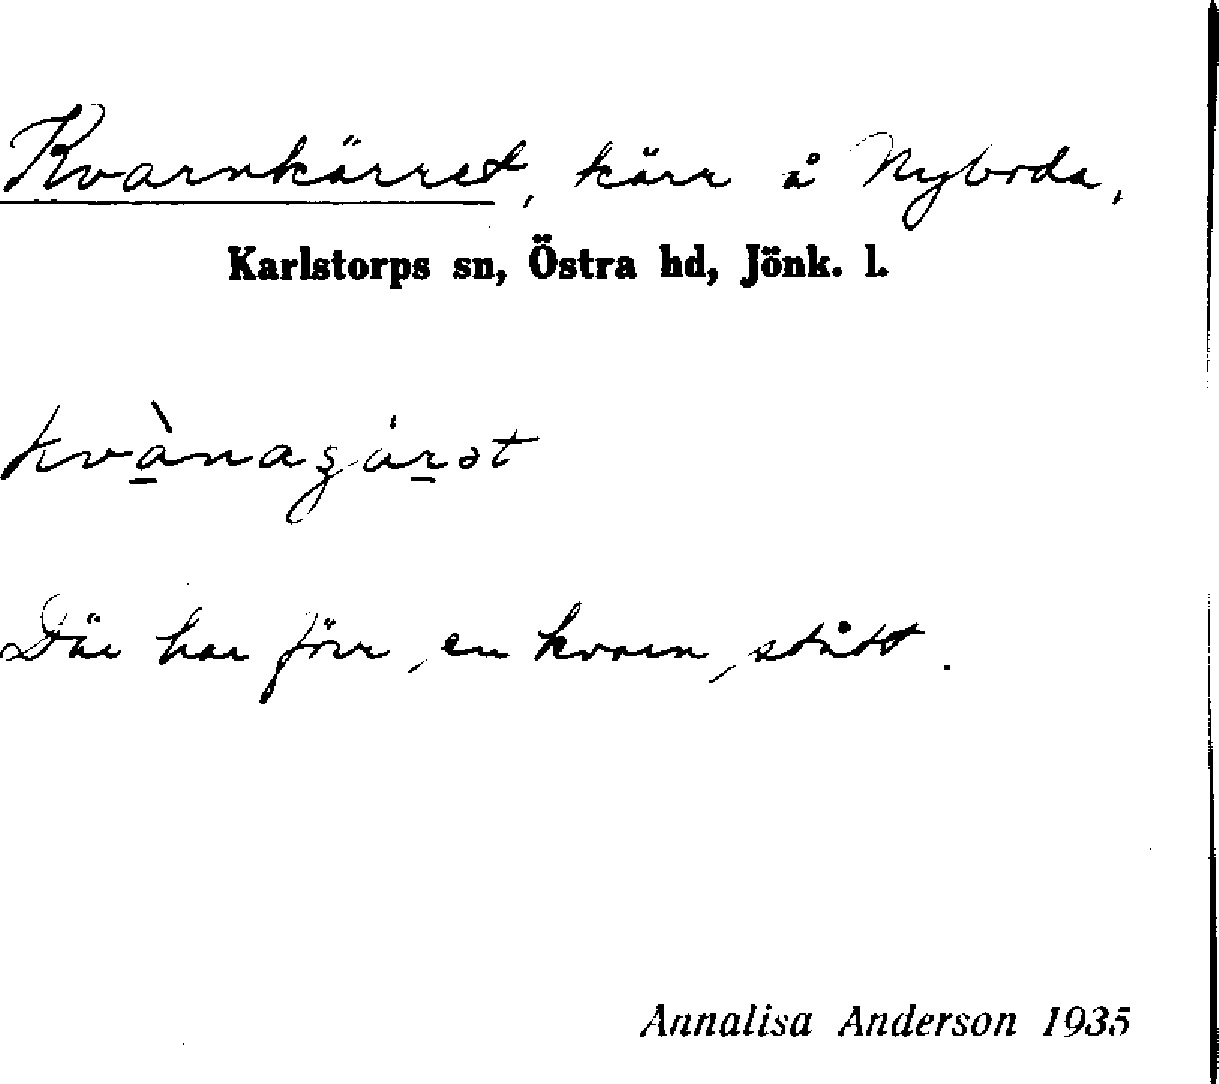 Kvarnkärret, kärr å Nyboda,
Karlstorps sn, Östra hd, Jönk. l.
Där har förr en kvarn stått.
Annalisa Anderson 1935